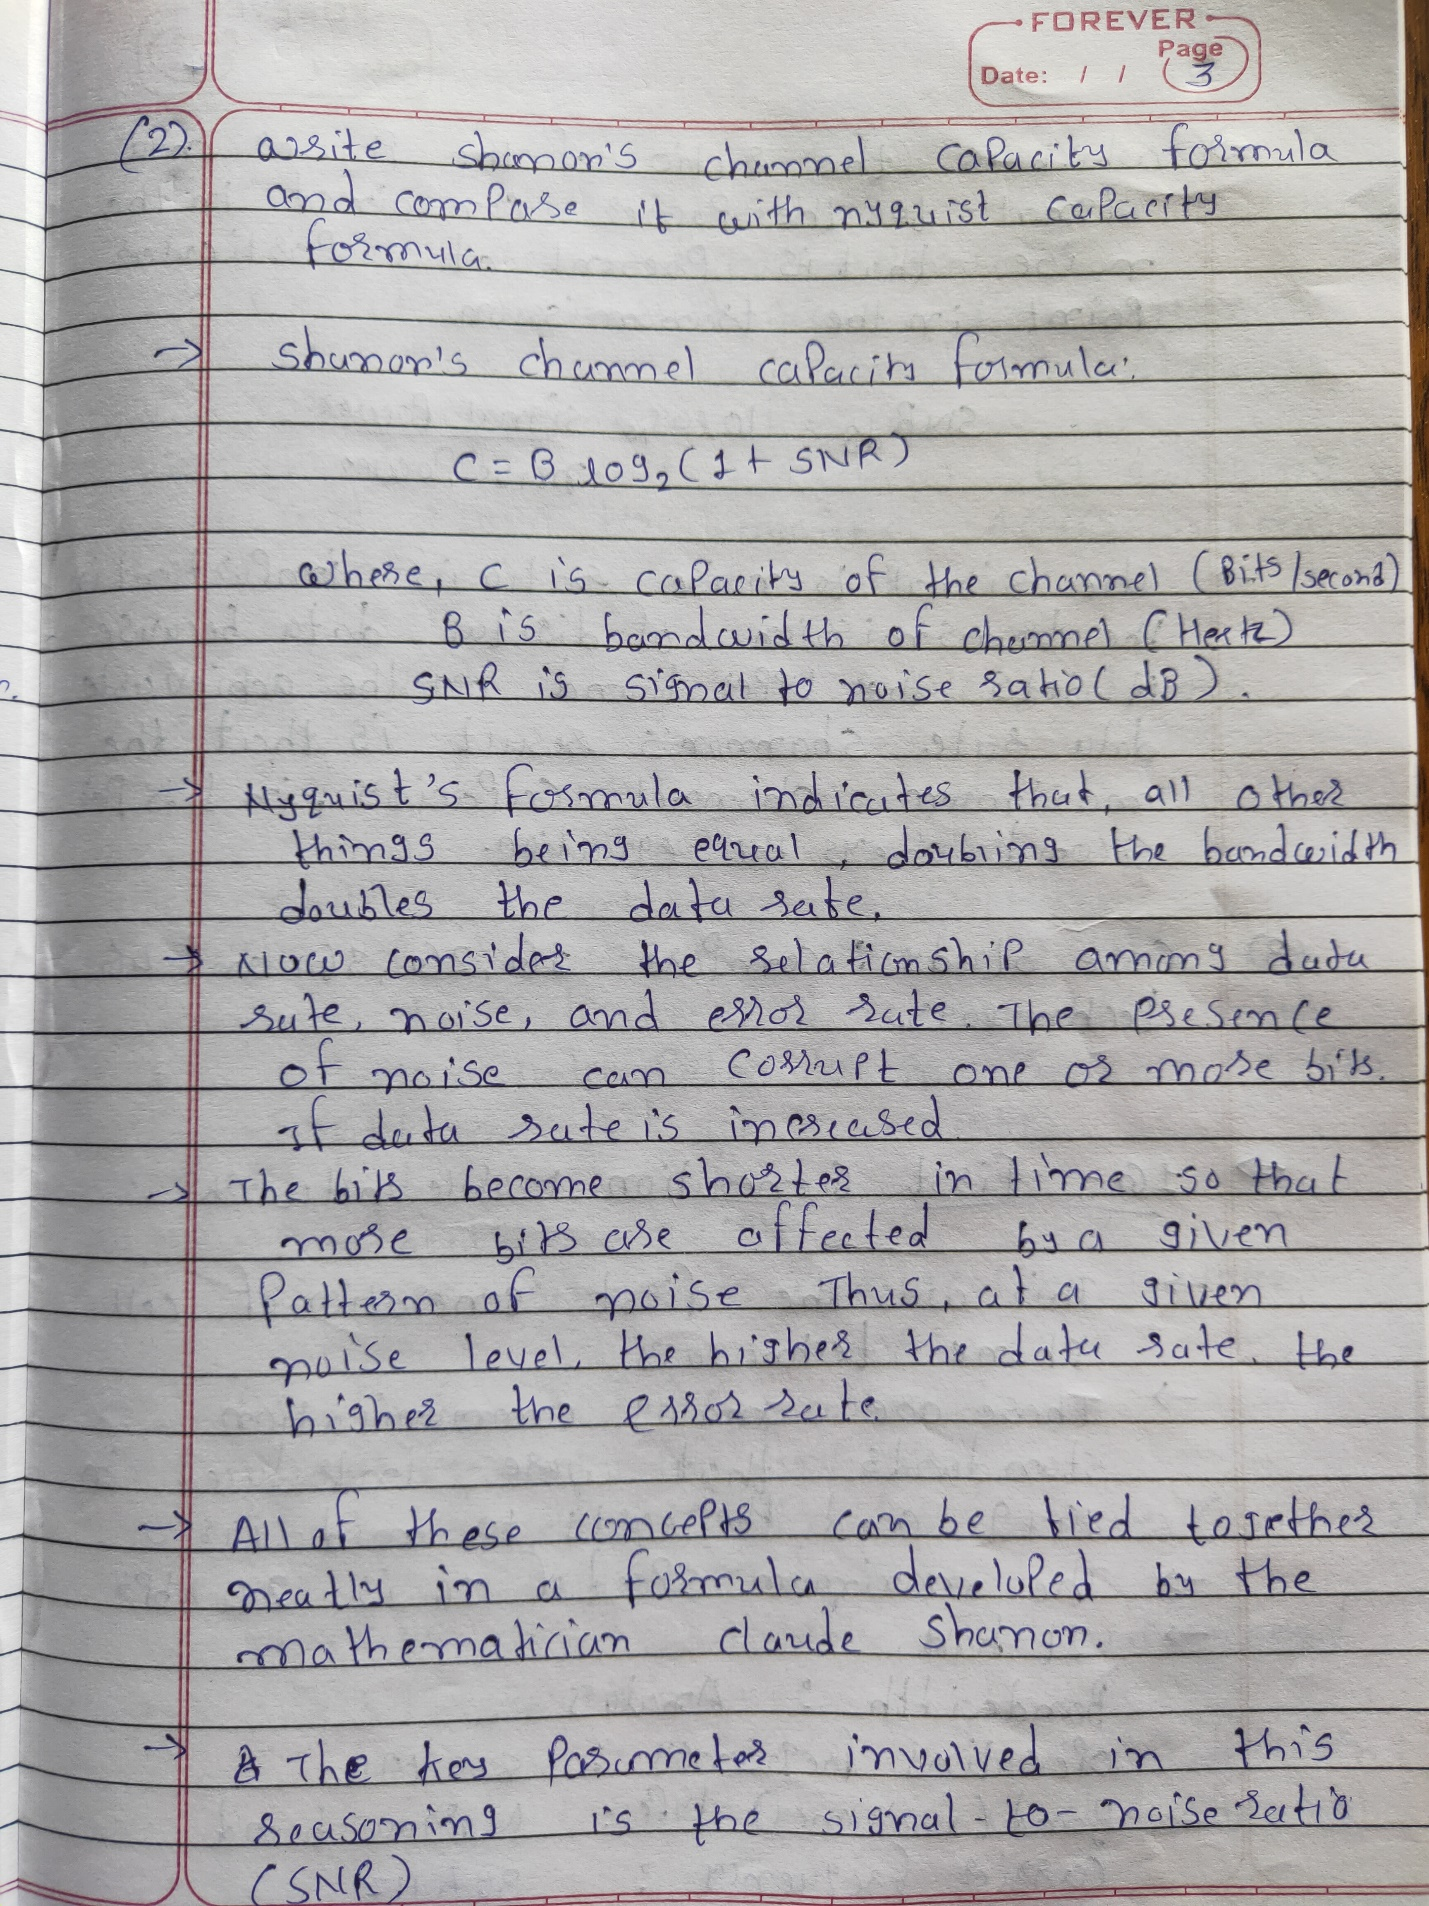 FOREVER
Page
Date: / / 3
(2). write shanon's channel capacity formula
and compare it with nyquist capacity
formula.
→ shanon's channel capacity formula:
C = B log₂ (1 + SNR)
where, C is capacity of the channel (Bits/second)
B is bandwidth of channel (Hertz)
SNR is signal to noise ratio (dB).
→ Nyquist's formula indicates that, all other
things being equal, doubling the bandwidth
doubles the data rate.
→ Now consider the relationship among data
rate, noise, and error rate. The presence
of noise can corrupt one or more bits.
If data rate is increased
→ The bits become shorter in time so that
more bits are affected by a given
Pattern of noise Thus, at a given
noise level, the higher the data rate, the
higher the error rate.
→ All of these concepts can be tied together
neatly in a formula developed by the
mathematician claude shanon.
→ The key Parameter involved in this
reasoning is the signal-to-noise ratio
(SNR)